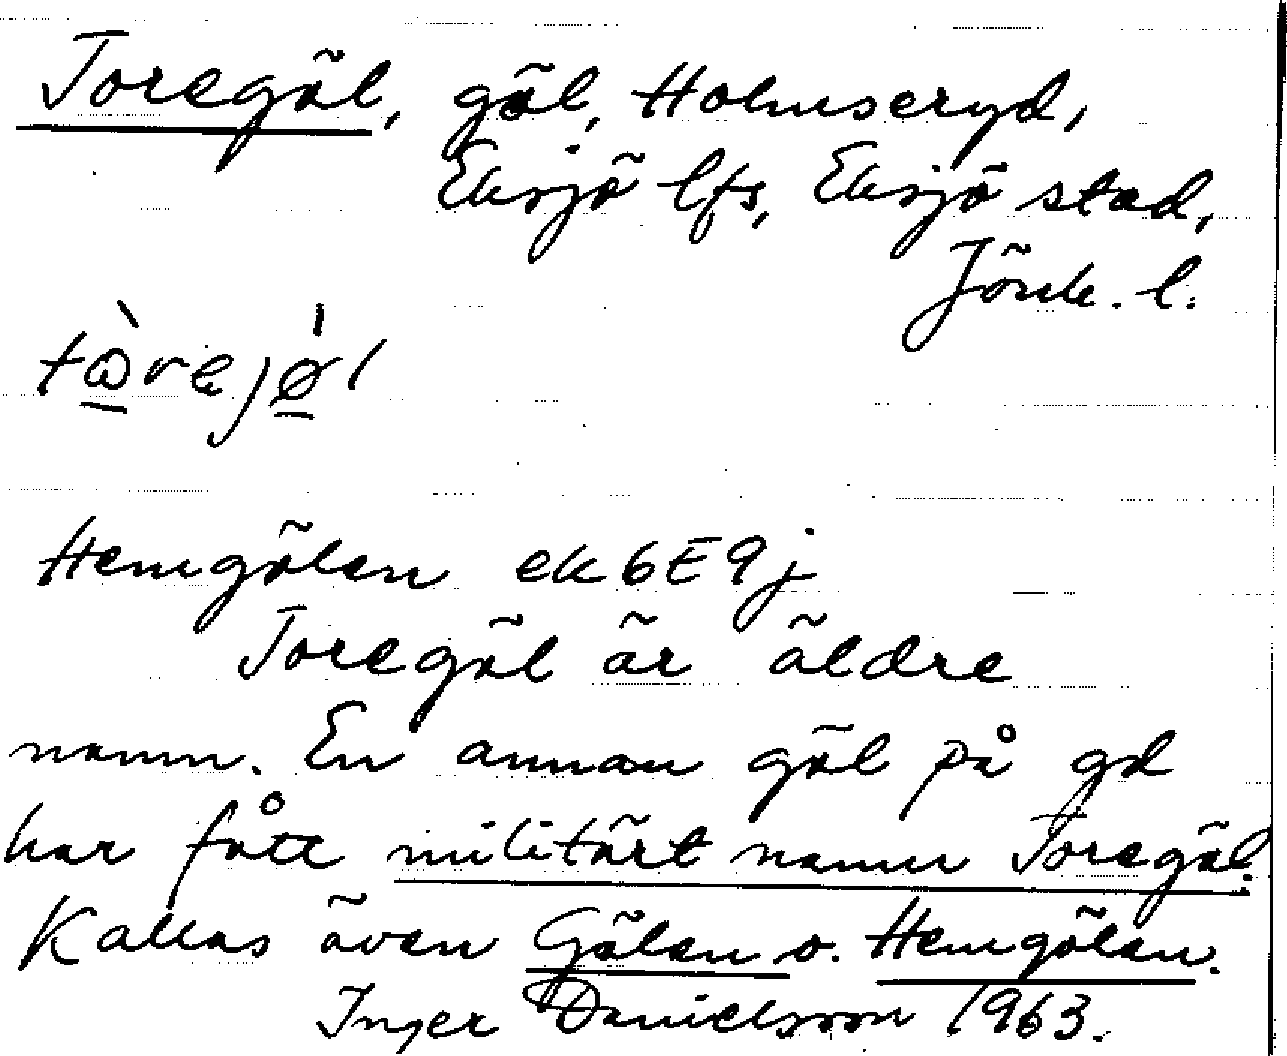 Toregöl, göl, Holmseryd,
Eksjö lfs, Eksjö stad,
Jönk. l.
Hemgölen ek 6E9j
Toregöl är äldre
namn. En annan göl på gd
har fått militärt namn Toregöl.
Kallas även Gölen o. Hemgölen.
Inger Danielsson 1963.